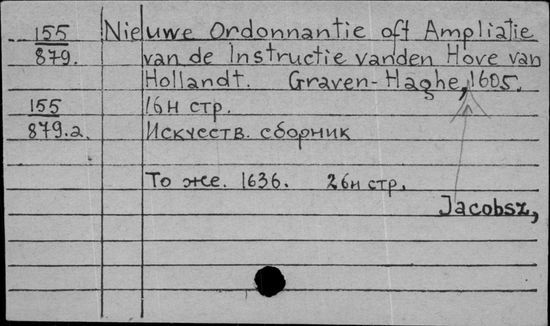 155 Nieuwe Ordonnantie oft Ampliatie
879. van de Instructie vanden Hove van
Hollandt. Graven-Haghe, 1605.
155 16н стр.
879.2. Искусств. сборник
То же. 1636. 26н стр.
Jacobsz,